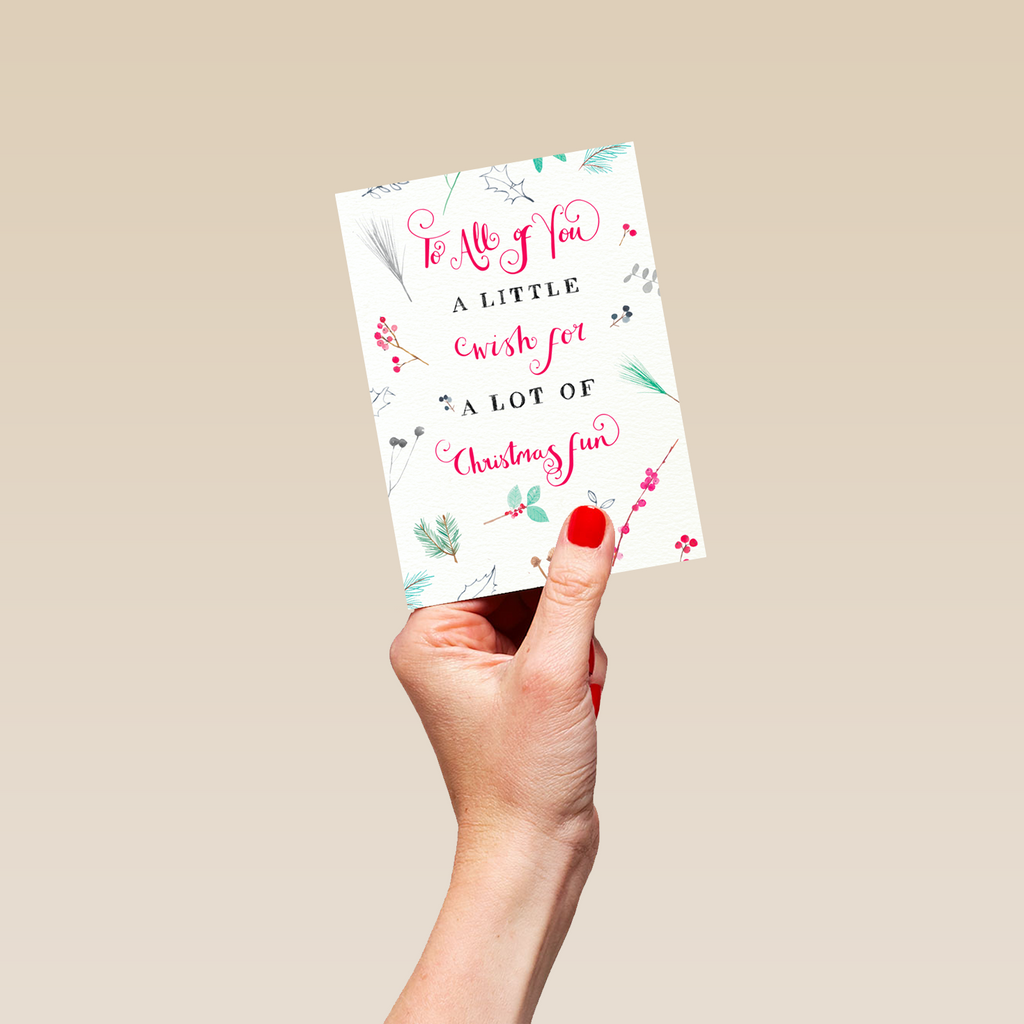 To All of You
A LITTLE
wish for
A LOT OF
Christmas fun